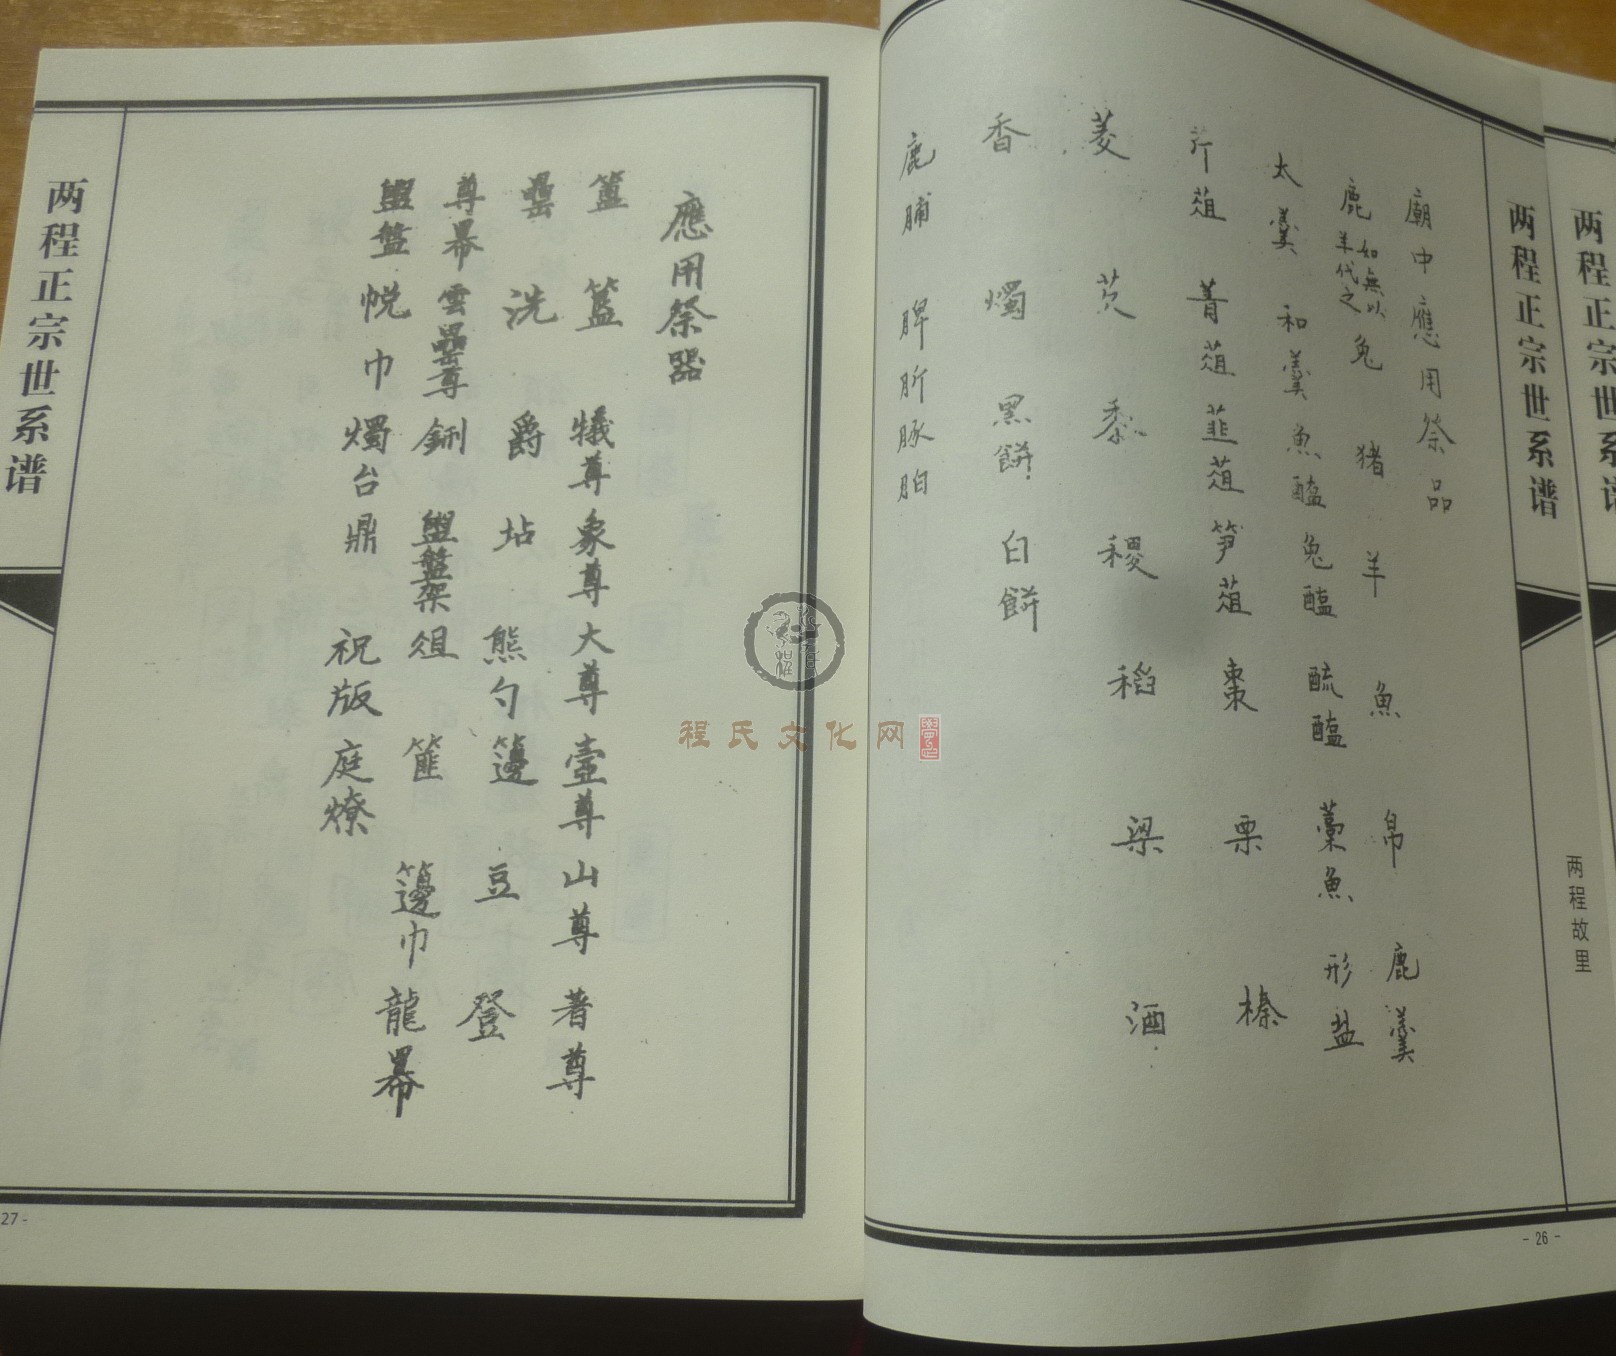 两程正宗世系谱
两程正宗世系谱
两程故里
- 26 -
廟中應用祭品
鹿如無以羊代之 兔 猪 羊 魚 帛 鹿羹
太羹 和羹 魚醢 兔醢 醓醢 藁魚 形盐
芹菹 菁菹 韮菹 笋菹 棗 栗 榛
菱 芡 黍 稷 稻 梁 酒
香 燭 黑餅 白餅
鹿脯 脾肵 豚胉
應用祭器
簠 簋 犧尊 象尊 大尊 壼尊 山尊 著尊
罍 洗 爵 坫 熊勺 籩 豆 登
尊幂 雲罍尊 鉶 盥盤架 俎 篚 籩巾 龍幂
盥盤 帨巾 燭台 鼎 祝版 庭燎
两程正宗世系谱
27 -
程氏文化网